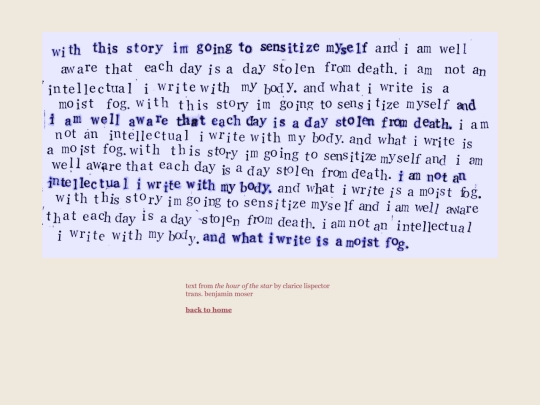 with this story im going to sensitize myself and i am well
aware that each day is a day stolen from death. i am not an
intellectual i write with my body. and what i write is a
moist fog. with this story im going to sensitize myself and
i am well aware that each day is a day stolen from death. i am
not an intellectual i write with my body. and what i write is
a moist fog. with this story im going to sensitize myself and i am
well aware that each day is a day stolen from death. i am not an
intellectual i write with my body. and what i write is a moist fog.
with this story im going to sensitize myself and i am well aware
that each day is a day stolen from death. i am not an intellectual
i write with my body. and what i write is a moist fog.
text from the hour of the star by clarice lispector
trans. benjamin moser
back to home